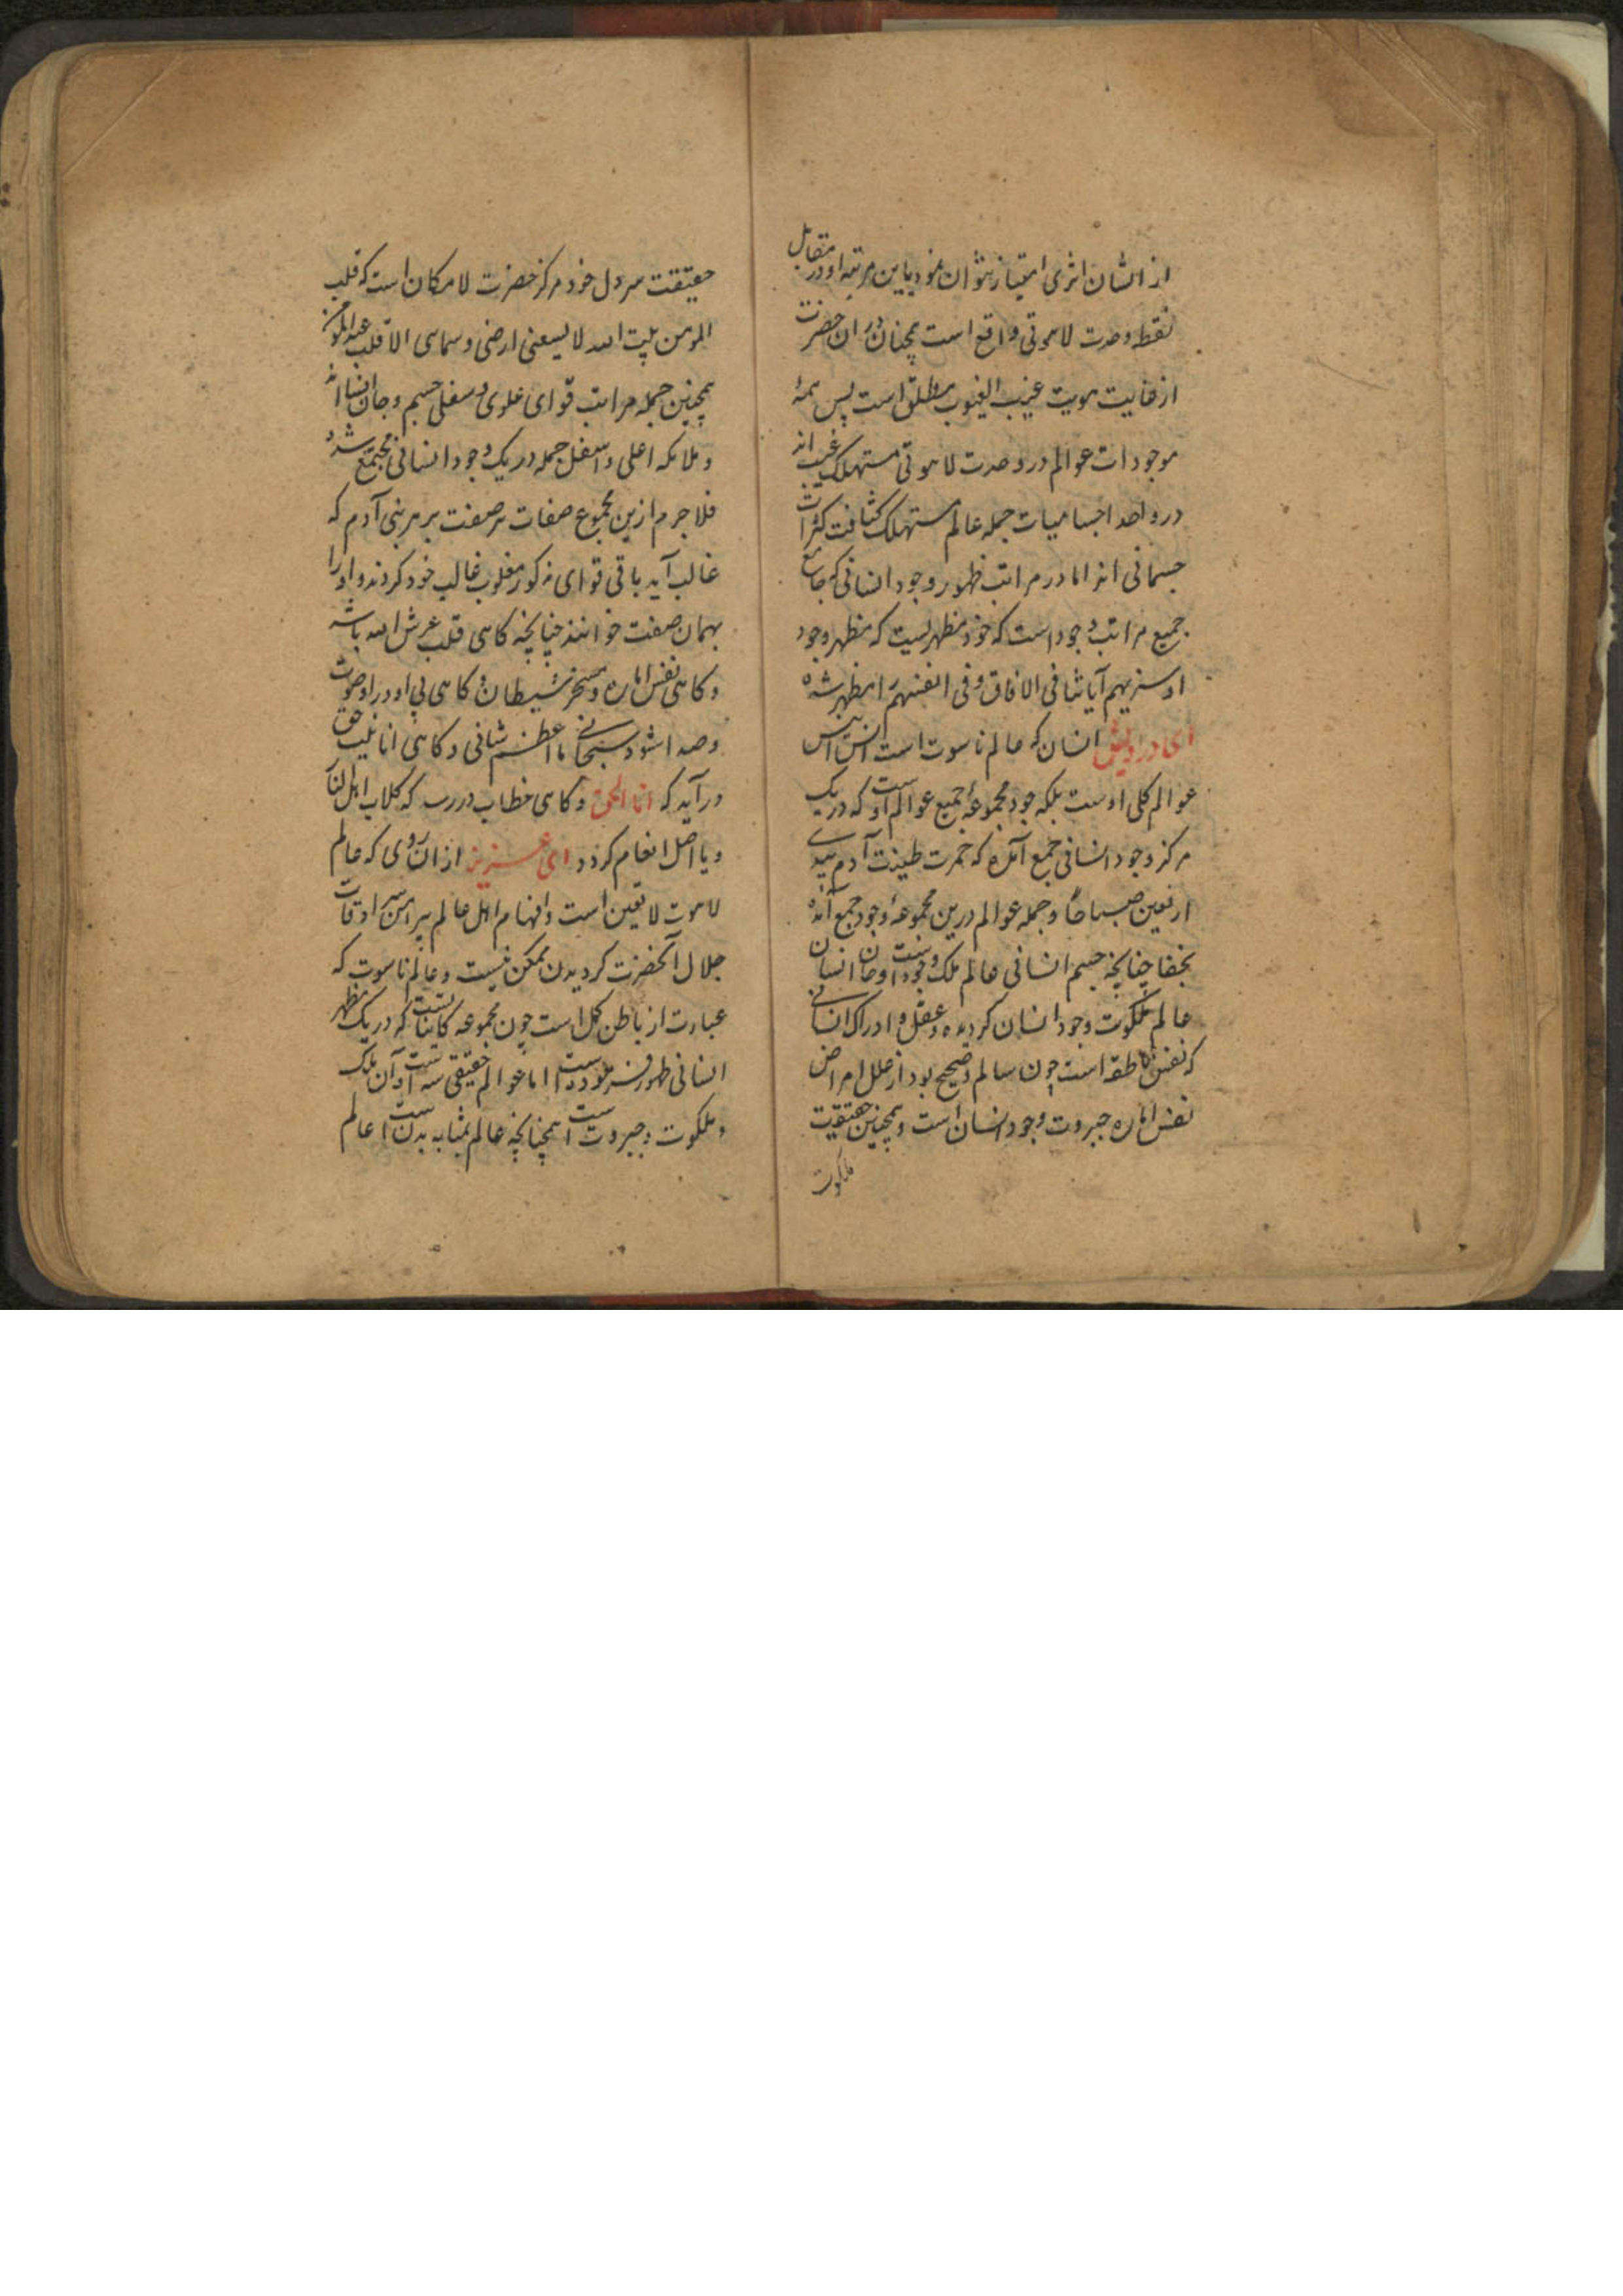 از انسان اثری امتیاز نتوان نمود باین مرتبه او در مقابل
نقطه وحدت لاهوتی واقع است همچنان در ان حضرت
از غایت هویت غیب الغیوب مطلق است پس همهٔ
موجودات عوالم در وحدت لاهوتی مستهلک غیب اند
در واحد اجسامیات جمله عالم مستهلک کثافت کثرات
جسمانی اند اما در مراتب ظهور وجود انسانی که جامع
جمیع مراتب وجود است که خود مظهریست که مظهر وجود
او سنریهم آیاتنا فی الافاق و فی انفسهم را مظهر شده
ای درویش انسان که عالم ناسوت است
عوالم کلی اوست بلکه خود مجموعهٔ جمیع عوالم اوست که در یک
مرکز وجود انسانی جمع آمده که خمرت طینت آدم بیدی
اربعین صباحًا و جمله عوالم درین مجموعهٔ وجود جمع آمده
بخفا چنانچه جسم انسانی عالم ملک وجود اوست و جان انسان
عالم ملکوت وجود انسان کردیده و عقل و ادراک انسانی
که نفس ناطقه است چون سالم و صحیح بود از علل امراض
نفس اماره جبروت وجود انسان است و همچنین حقیقت
ملکوت
حقیقت سر دل خود مرکز حضرت لامکان است که قلب
المومن بیت الله لا یسعنی ارضی و سمای الا قلب عبد المومن
همچنین جمله مراتب قوای علوی و سفلی جسم و جان انسان اند
و ملایکه اعلی و اسفل جمله در یک وجود انسانی مجتمع شد و
فلاجرم ازین مجموع صفات هر صفت بر هر بنی آدم که
غالب آید باقی قوای مذکور مغلوب غالب خود کردند و او را
بهمان صفت خوانند چنانچه کاهی قلب عرش الله باشد
و کاهی نفس اماره و مسخر شیطان و کاهی بی او در او صوت
و صدا شود سبحانی ما اعظم شانی و کاهی انا نایب حق
در آید که انا الحق و کاهی خطاب در رسد که کلاب اهل النار
و یا اضل انعام کردد ای عزیز از ان روی که عالم
لاهوت لا تعین است و افهام اهل عالم پیرامن سرادقات
جلال آنحضرت کردیدن ممکن نیست و عالم ناسوت که
عبارت از باطن کل است چون مجموعه کاینات است که در یک مظهر
انسانی ظهور فرموده است اما عوالم حقیقی سه است آن ملک
و ملکوت و جبروت است همچنانچه عالم بمثابه بدن است عالم